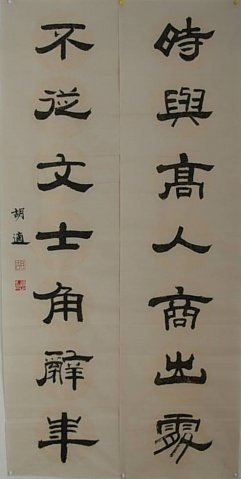 時與高人商出處
不從文士角辭華
胡適